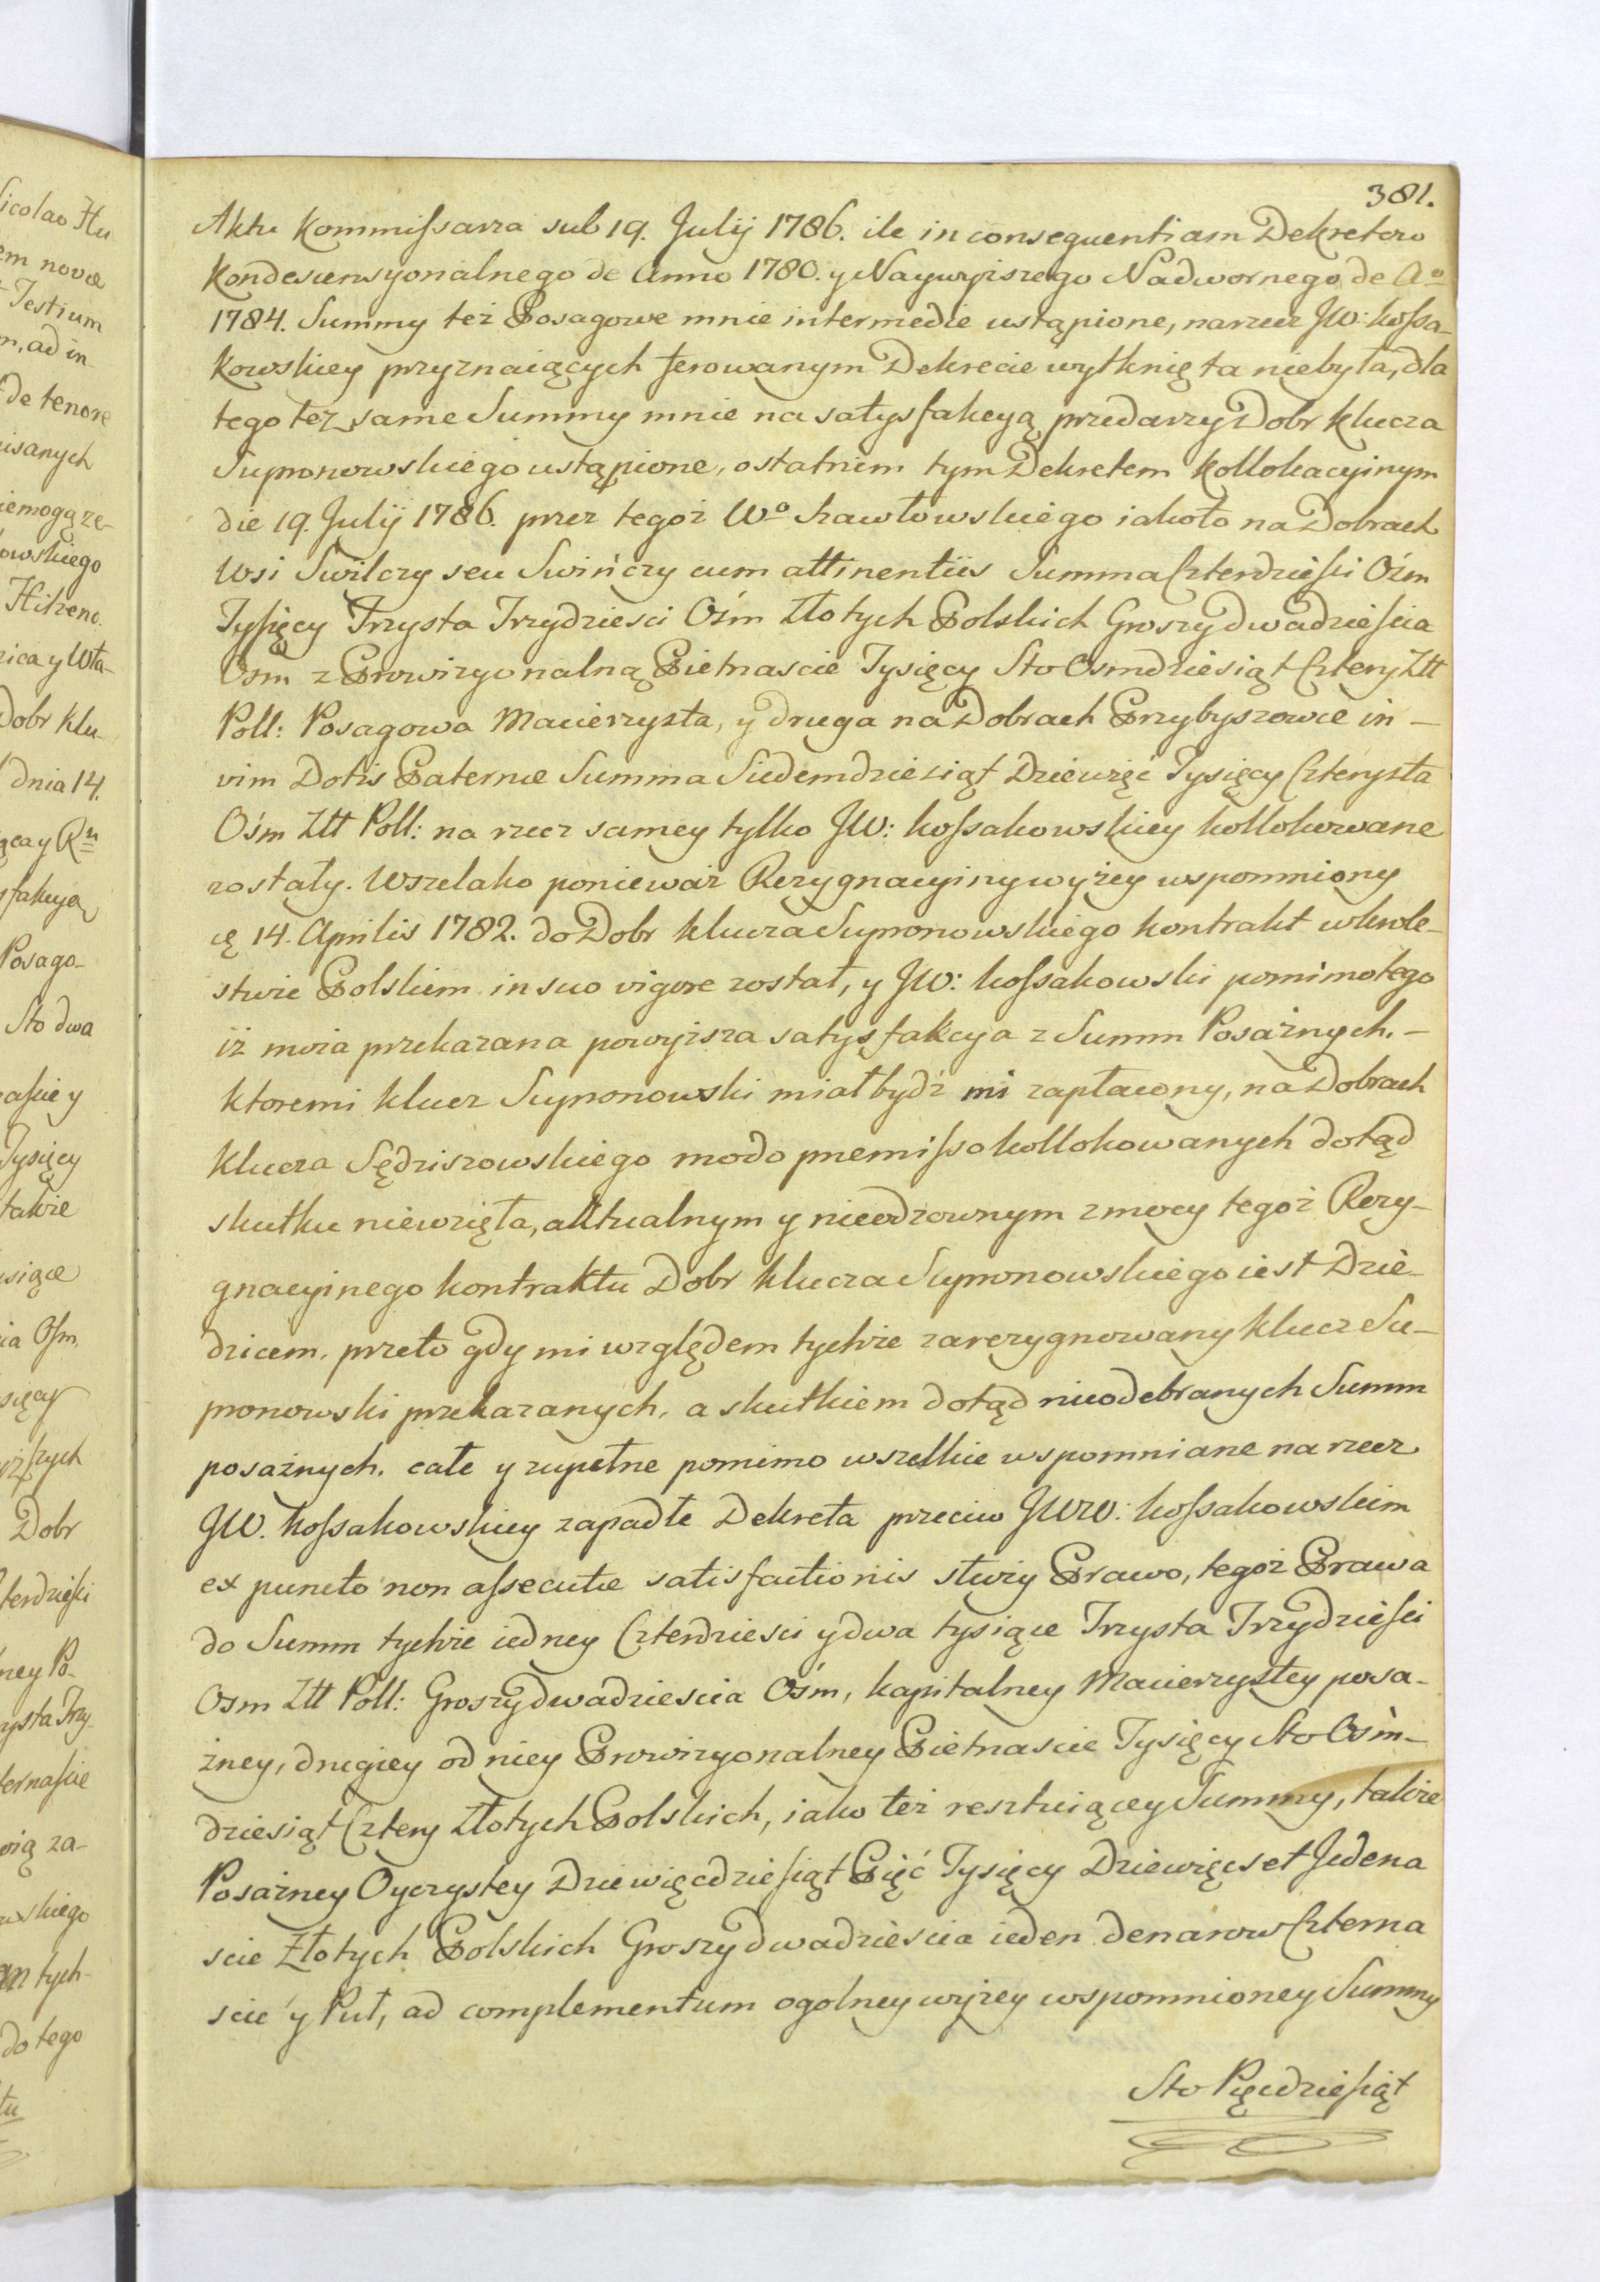 381.
Aktu Kommissarza sub 19. Julij 1786. ile in consequentiam Dekretow
Kondescensyonalnego de Anno 1780. y Naywyiszego Nadwornego de Aº
1784. Summy też Posagowe mnie intermedie ustąpione, na rzecz JW: Kossa-
kowskiey przyznaiących ferowanym Dekrecie wytknięta niebyła, dla
tego też same Summy mnie na satysfakcyą przedarzy Dobr Klucza
Suponowskiego ustąpione, ostatniem tym Dekretem Kollokacyinym
die 19. Julij 1786. przez tegoż Wº Szawłowskiego iakoto na Dobrach
Wsi Swilczy seu Swińczy cum attinentiis Summa Czterdziesci Ośm
Tysięcy Trzysta Trzydziesci Ośm Złotych Polskich Groszy dwadziescia
Osm z Prowizyonalną Pietnascie Tysięcy Sto Osmdziesiąt Cztery Złt
Poll: Posagowa Macierzysta, y druga na Dobrach Przybyszowce in-
vim Dotis Paternæ Summa Siedemdziesiąt Dziewięć Tysięcy Czterysta
Ośm Złt Poll: na rzecz samey tylko JW: Kossakowskiey kollokowane
zostały. Wszelako ponieważ Rezygnacyiny wyżey wspomniony
się 14. Aprilis 1782. do Dobr Klucza Suponowskiego kontrakt wkrole-
stwie Polskiem in suo vigore został, y JW: Kossakowski pomimo tego
iż moia przekazana powyisza satysfakcya z Summ Posażnych.-
ktoremi klucz Suponowski miał bydź mi zapłacony, na Dobrach
Klucza Sędziszowskiego modo præmisso kollokowanych dotąd
skutku niewzięła, aktualnym y nieodzownym z mocy tegoż Rezy-
gnacyinego kontraktu Dobr Klucza Suponowskiego iest Dzie-
dzicem. przeto gdy mi względem tychże zarezygnowany klucz Su-
ponowski przekazanych, a skutkiem dotąd nieodebranych Summ
posażnych. całe y zupełne pomimo wszelkie wspomniane na rzecz
JW. Kossakowskiey zapadłe Dekreta przeciw JWW: Kossakowskim
ex puncto non assecutæ satisfactionis służy Prawo, tegoż Prawa
do Summ tychże iedney Czterdziesci y dwa tysiące Trzysta Trzydziesci
Osm Złt Poll: Groszy dwadziescia Ośm, kapitalney Macierzystey posa-
żney, drugiey od niey Prowizyonalney Pietnascie Tysięcy Sto Ośm-
dziesiąt Cztery Złotych Polskich, iako też resztuiącey Summy, także
Posażney Oyczystey Dziewięćdziesiąt Pięć Tysięcy Dziewięcset Jedena
scie Złotych Polskich Groszy dwadziescia ieden denarow Czterna
scie y Puł, ad complementum ogolney wyżey wspomnioney Summy
Sto Pięćdziesiąt